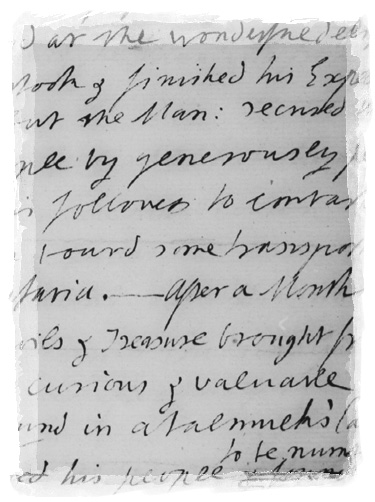 at the wonderfne dee
took & finished his Exp
ut the Man: secused
by generously
followes to
tourd some transpor
taria. — After a Month
oils & Treasure brought fr
curious & valuable
und in a
to be num
ed his people